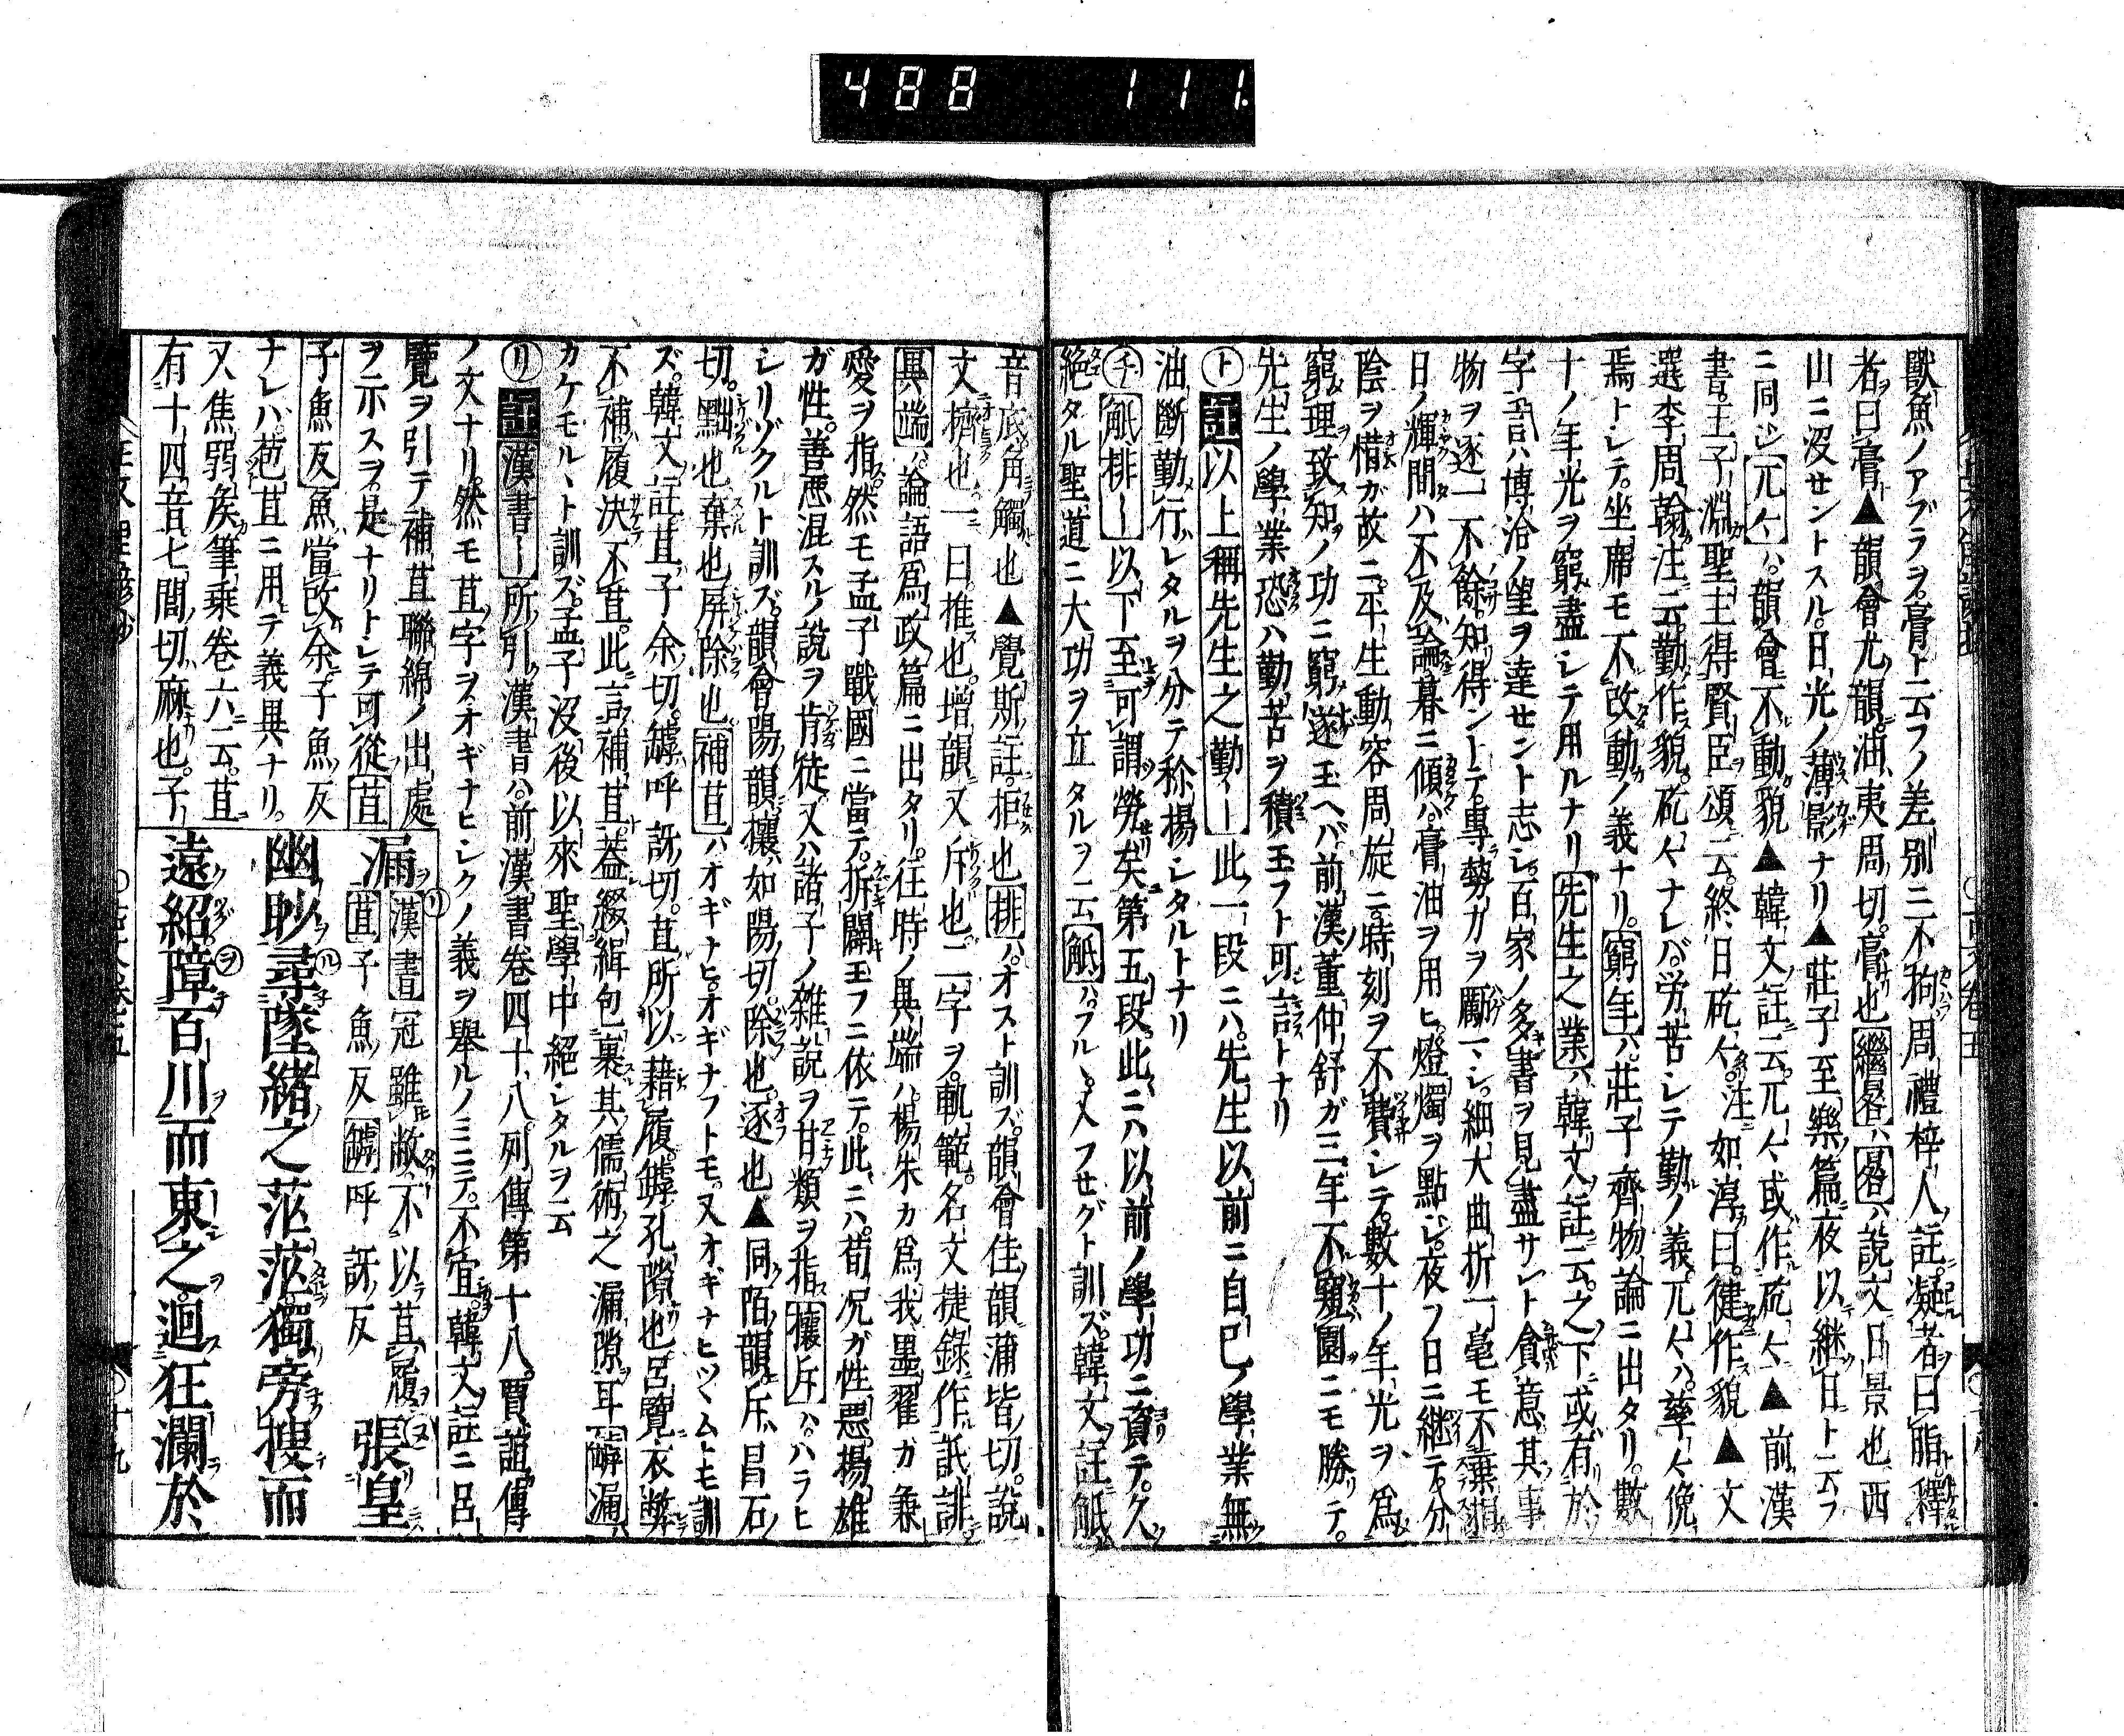 488 111.
獸魚ノアブラヲ。膏ト云フノ差別ニ不拘周禮梓人註。凝者曰脂。釋
者曰膏▲韻會尤韻。油夷周切。膏也 繼晷ハ 晷ハ說文日景也西
山ニ沒センントスル。日光ノ薄影ナリ▲莊子至樂篇夜以継日ト云フ
ニ同シ 兀々ハ。韻會不動貌▲韓文註云。兀々或作矻々▲前漢
書。王子淵聖主得賢臣頌云。終日矻々。注如淳曰。健作貌▲文
選李周翰注云。勤作貌。矻々ナレバ。労苦シテ勤ルノ義。兀々ハ。孳々俛
焉トシテ。坐席モ不改動ノ義ナリ。窮年ハ。莊子齊物論ニ出タリ。數
十ノ年光ヲ窮盡シテ用ルナリ 先生之業ハ韓文註云。之下或有於
字言ハ博洽ノ望ヲ達セント志シ。百家ノ多書ヲ見盡サレト貪意。其事
物ヲ逐一不餘。知得ントテ。專勢力ヲ勵マシ。細大曲折一毫モ不棄捐
日ノ輝間ハ不及論暮ニ傾ハ。膏油ヲ用ヒ。燈燭ヲ點シ。夜ヲ日ニ継テ。分
陰ヲ惜ガ故ニ。平生動容周旋ニ。時刻ヲ不費シテ。數十ノ年光ヲ爲
窮理致知ノ功ニ窮遂玉ヘバ。前漢董仲舒ガ三年不窺園ニモ勝リテ。
先生ノ學業恐ハ勤苦ヲ積玉フト可言トナリ
㋣註以上稱先生之勤〱此一段ニハ。先生以前ニ自己ノ學業無
油斷勤行レタルヲ分テ称揚シタルトナリ
㋠觝排〱以下至可謂勞矣第五段。此ニハ以前ノ學功ニ資テ。久
絶タル聖道ニ大功ヲ立タルヲ云 觝ハ。フル丶。又フセグト訓ズ。韓文註觝
音底角觸也▲覺斯註。拒也 排ハ。オスト訓ズ。韻會佳韻蒲皆切。說
文擠也。一曰。推也。增韻又斥也。二字ヲ。軌範。名文捷錄作詆誹
異端ハ。論語爲政篇ニ出タリ。往時ノ異端ハ。楊朱カ爲我墨翟カ兼
愛ヲ指。然モ孟子戰國ニ當テ。拆闢玉フニ依テ。此ニハ。荀况ガ性惡楊雄
ガ性。善悪混スルノ說ヲ肯徒。又ハ諸子ノ雜說ヲ甘類ヲ指 攘斥ハ。ハラヒ
シリゾクルト訓ズ。韻會陽韻攘如陽切。除也。逐也▲同陌韻斥昌石
切。黜也棄也屏除也 補苴ハオギナヒ。オギナフトモ。又オギナヒツヽムトモ訓
ズ。韓文註苴子余切。罅呼訝切。苴所以藉履。罅孔隙也呂覽衣弊
不補履決不苴。此言補苴。葢綴緝包裹其儒術之漏隙耳 罅漏ハ
カケモルヽト訓ズ。孟子沒後以來聖學中絕シタルヲ云
㋷註漢書〱所引漢書ハ。前漢書卷四十八。列傳第十八。賈誼傳
ノ文ナリ。然モ苴字ヲオギナヒシクノ義ヲ舉ルノミニテ。不宜。韓文註ニ呂
覽ヲ引テ補苴聯綿ノ出處
ヲ示スヲ。是ナリトシテ可從 苴
子魚反 魚當改余。子魚反
ナレバ。苞苴ニ用テ義異ナリ。
又焦弱矦筆乘卷六云。苴
有十四音。七閭切麻也。子
漏㋷漢書冠雖敝不以苴履㋦張皇
苴子魚反 罅呼訝反
幽眇㋸尋墜緒之茫茫獨旁搜而
遠紹㋾障百川而東之。迴狂瀾於